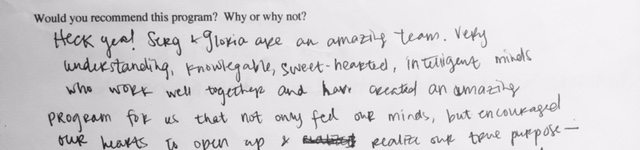 Would you recommend this program? Why or why not?
Heck yea! Serg & Gloria are an amazing team. Very
understanding, knowlegable, sweet-hearted, intelligent minds
who work well together and have created an amazing
program for us that not only fed our minds, but encouraged
our hearts to open up & realize our true purpose—